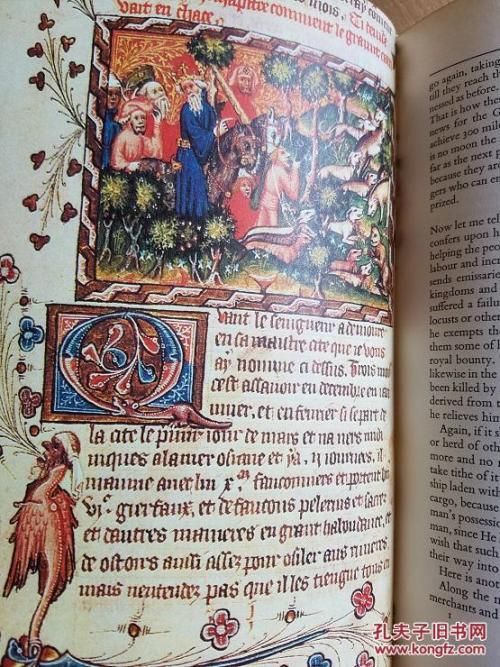 chapitre comment le graunt
vait en chace
uant le seigneur a demoure
en sa maistre cite que ie vous
ay nomme ci dessus. Trois
cest assauoir en decembre en ian
uier, et en feurier si se part de
la cite le iour de mars et na uers
iques a la mer oseane et y a .ii. iournees, il
maine auec lui .x. fauconniers et portent bien
et de faucons pelerins et sacres
et dautres manieres en grant habondance, et
de ostoirs aussi assez pour oiseler aus riuieres.
mais nentendez pas que il les tiengne tous en
go again, taking
till they reach th
nessed as before.
That is how the
news for the G
achieve 300 mile
is no moon the
far as the next p
because they are
gers who can en
prized.
Now let me tel
confers upon h
helping the peop
labour and incr
sends emissarie
kingdoms and
suffered a failu
locusts or other
he exempts th
them some of h
royal bounty,
likewise in the
been killed by
derived from t
he relieves him
Again, if it s
or herd of othe
more and no
take tithe of it
ship laden with
cargo, because
man's possess
man, since He
wish that such
their way into
Here is anoth
Along the
merchants and
孔夫子旧书网
www.kongfz.com